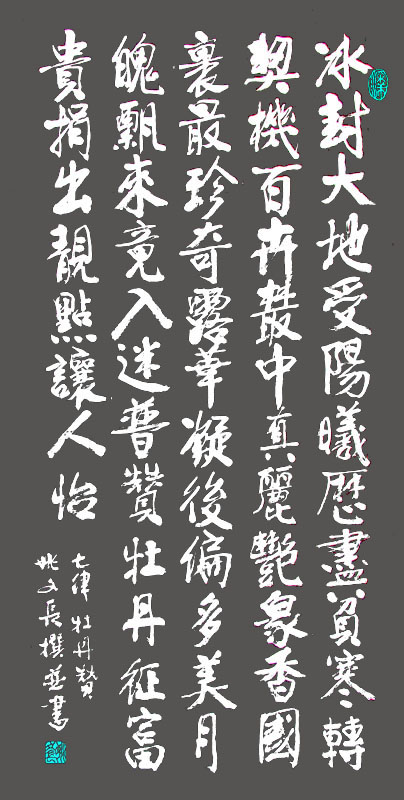 冰封大地受陽曦歷盡貧寒轉
契機百卉叢中真麗艷眾香國
裏最珍奇露華凝後偏多美月
魄飄來竟入迷普贊牡丹征富
貴捐出靚點讓人怡
七律牡丹贊
文長撰並書